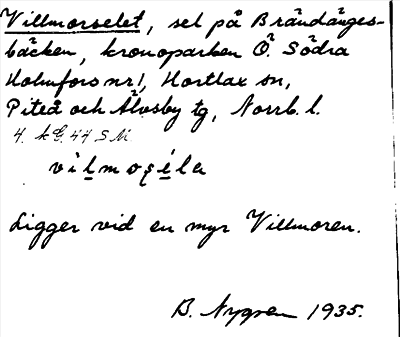 Villmorselet, sel på Brändänges-
bäcken, kronoparken Ö. Södra
Holmfors nr 1, Hortlax sn,
Piteå och Älvsby tg, Norrb. l.
4. kE. 44 S M
Ligger vid en myr Villmoren.
B. Nygren 1935.